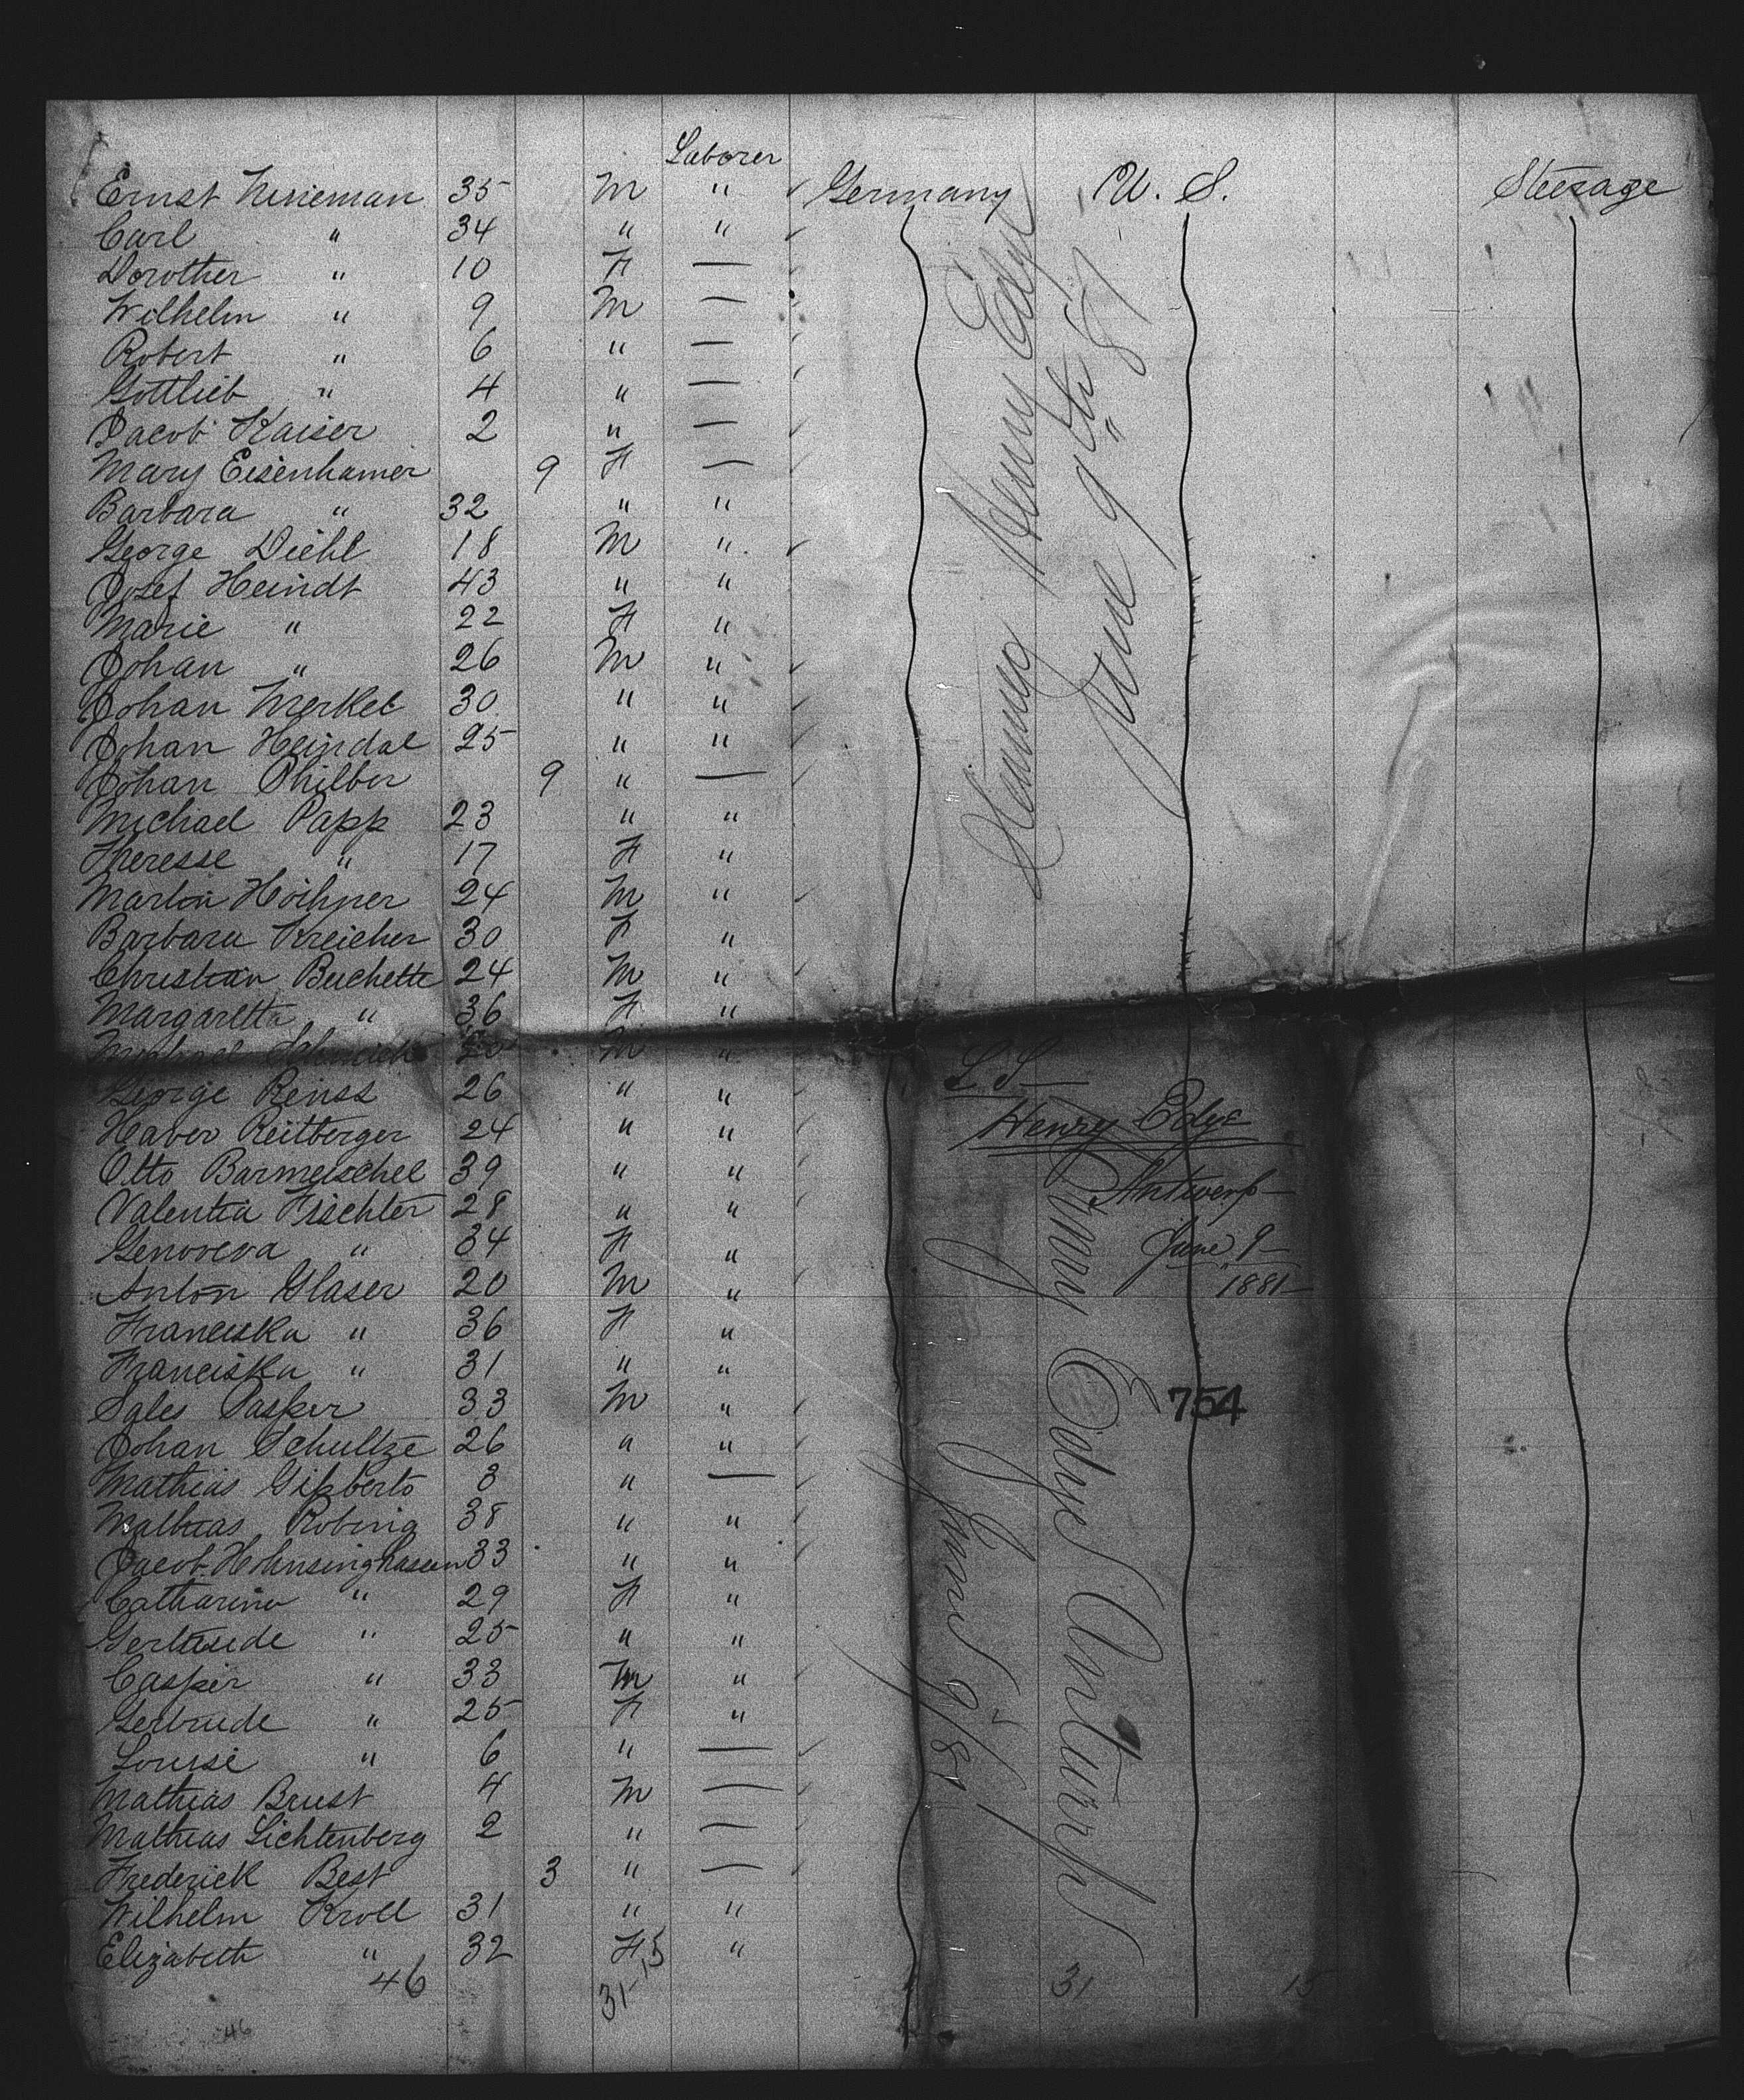 Laborer
Ernst Nerieman 35 M " Germany U. S. Steerage
Carl " 34 " "
Dorother " 10 F —
Wilhelm " 9 M —
Robert " 6 " —
Gottlieb " 4 " —
Jacob Kaiser 2 " —
Mary Eisenhamer 9 F —
Barbara " 32 " "
George Diehl 18 M "
Josef Heindt 43 " "
Marie " 22 F "
Johan " 26 M "
Johan Merkel 30 " "
Johan Heindal 25 " "
Johan Philber 9 " —
Michael Papp 23 " "
Theresse " 17 F "
Martin Höihner 24 M "
Barbara Kreicher 30 F "
Christian Buchette 24 M "
Margaretta " 36 F "
20 M "
George Reinss 26 " "
Haver Reitberger 24 " "
Otto Barmeischel 39 " "
Valentia Fischter 28 " "
Genoveva " 34 F "
Anton Glaser 20 M "
Franciska " 36 F "
Franciska " 31 " "
Sales Pasker 33 M "
Johan Schultze 26 " "
Mathias Gipberts 3 " —
Mathias Robinig 38 " "
Jacob Hohnsinghausen 33 " "
Catharina " 29 F "
Gertrude " 25 " "
Casper " 33 M "
Gertrude " 25 F "
Louise " 6 " —
Mathias Brust 4 M —
Mathias Lichtenberg 2 " —
Frederick Best 3 " —
Wilhelm Kroll 31 " "
Elizabeth " 32 F "
46 31 15 31 15
46
Henry Edye
June 9th 81
L S
Henry Edye
Antwerp
June 9
1881
754
Henry Edye Antwerp
June 9/81